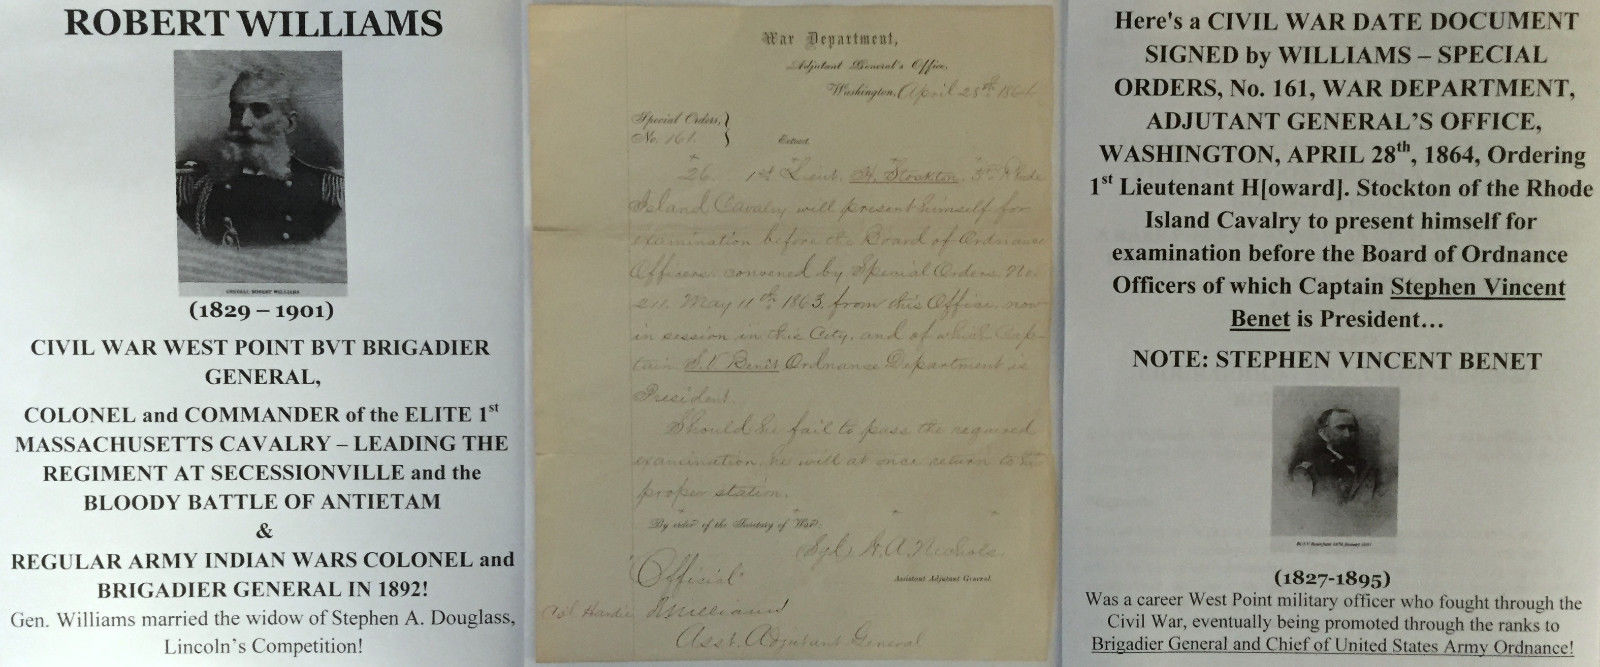 ROBERT WILLIAMS
GENERAL ROBERT WILLIAMS
(1829 – 1901)
CIVIL WAR WEST POINT BVT BRIGADIER
GENERAL,
COLONEL and COMMANDER of the ELITE 1st
MASSACHUSETTS CAVALRY – LEADING THE
REGIMENT AT SECESSIONVILLE and the
BLOODY BATTLE OF ANTIETAM
&
REGULAR ARMY INDIAN WARS COLONEL and
BRIGADIER GENERAL IN 1892!
Gen. Williams married the widow of Stephen A. Douglass,
Lincoln's Competition!
War Department,
Adjutant General's Office,
Washington, April 28th 1864
Special Orders, }
No. 161. }
Extract.
26. 1st Lieut. H. Stockton, 3rd Rhode
Island Cavalry will present himself for
examination before the Board of Ordnance
Officers convened by Special Orders, No
211 May 11th 1863, from this Office, now
in session in this City, and of which Cap-
tain S. V. Benét Ordnance Department is
President.
Should he fail to pass the required
examination, he will at once return to his
proper station.
By order of the Secretary of War:
Sgd, W. A. Nichols
Assistant Adjutant General.
"Official"
Col Hardie RWilliams
Asst. Adjutant General
Here's a CIVIL WAR DATE DOCUMENT
SIGNED by WILLIAMS – SPECIAL
ORDERS, No. 161, WAR DEPARTMENT,
ADJUTANT GENERAL'S OFFICE,
WASHINGTON, APRIL 28th, 1864, Ordering
1st Lieutenant H[oward]. Stockton of the Rhode
Island Cavalry to present himself for
examination before the Board of Ordnance
Officers of which Captain Stephen Vincent
Benet is President…
NOTE: STEPHEN VINCENT BENET
(1827-1895)
Was a career West Point military officer who fought through the
Civil War, eventually being promoted through the ranks to
Brigadier General and Chief of United States Army Ordnance!